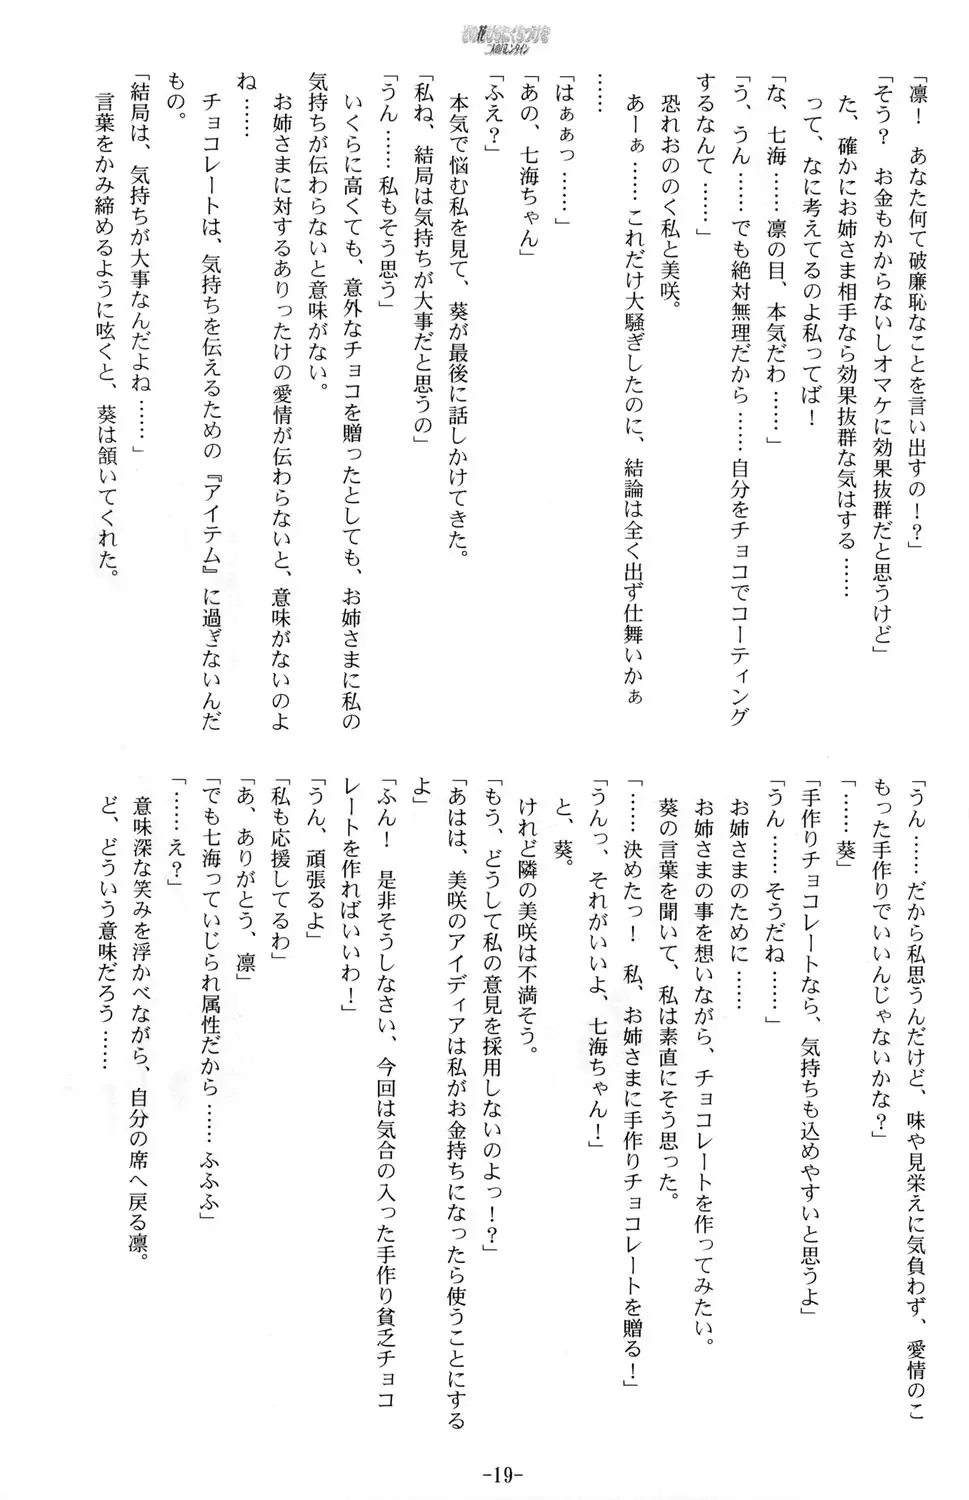 その花びらにくちづけを
「凛！　あなた何て破廉恥なことを言い出すの！？」
「そう？　お金もかからないしオマケに効果抜群だと思うけど」
た、確かにお姉さま相手なら効果抜群な気はする……
って、なに考えてるのよ私ってば！
「な、七海……凛の目、本気だわ……」
「う、うん……でも絶対無理だから……自分をチョコでコーティング
するなんて……」
恐れおののく私と美咲。
あーぁ……これだけ大騒ぎしたのに、結論は全く出ず仕舞いかぁ
……
「はぁぁっ……」
「あの、七海ちゃん」
「ふえ？」
本気で悩む私を見て、葵が最後に話しかけてきた。
「私ね、結局は気持ちが大事だと思うの」
「うん……私もそう思う」
いくらに高くても、意外なチョコを贈ったとしても、お姉さまに私の
気持ちが伝わらないと意味がない。
お姉さまに対するありったけの愛情が伝わらないと、意味がないのよ
ね……
チョコレートは、気持ちを伝えるための『アイテム』に過ぎないんだ
もの。
「結局は、気持ちが大事なんだよね……」
言葉をかみ締めるように呟くと、葵は頷いてくれた。
「うん……だから私思うんだけど、味や見栄えに気負わず、愛情のこ
もった手作りでいいんじゃないかな？」
「……葵」
「手作りチョコレートなら、気持ちも込めやすいと思うよ」
「うん……そうだね……」
お姉さまのために……
お姉さまの事を想いながら、チョコレートを作ってみたい。
葵の言葉を聞いて、私は素直にそう思った。
「……決めたっ！　私、お姉さまに手作りチョコレートを贈る！」
「うんっ、それがいいよ、七海ちゃん！」
と、葵。
けれど隣の美咲は不満そう。
「もう、どうして私の意見を採用しないのよっ！？」
「あはは、美咲のアイディアは私がお金持ちになったら使うことにする
よ」
「ふん！　是非そうしなさい、今回は気合の入った手作り貧乏チョコ
レートを作ればいいわ！」
「うん、頑張るよ」
「私も応援してるわ」
「あ、ありがとう、凛」
「でも七海っていじられ属性だから……ふふふ」
「……え？」
意味深な笑みを浮かべながら、自分の席へ戻る凛。
ど、どういう意味だろう……
-19-